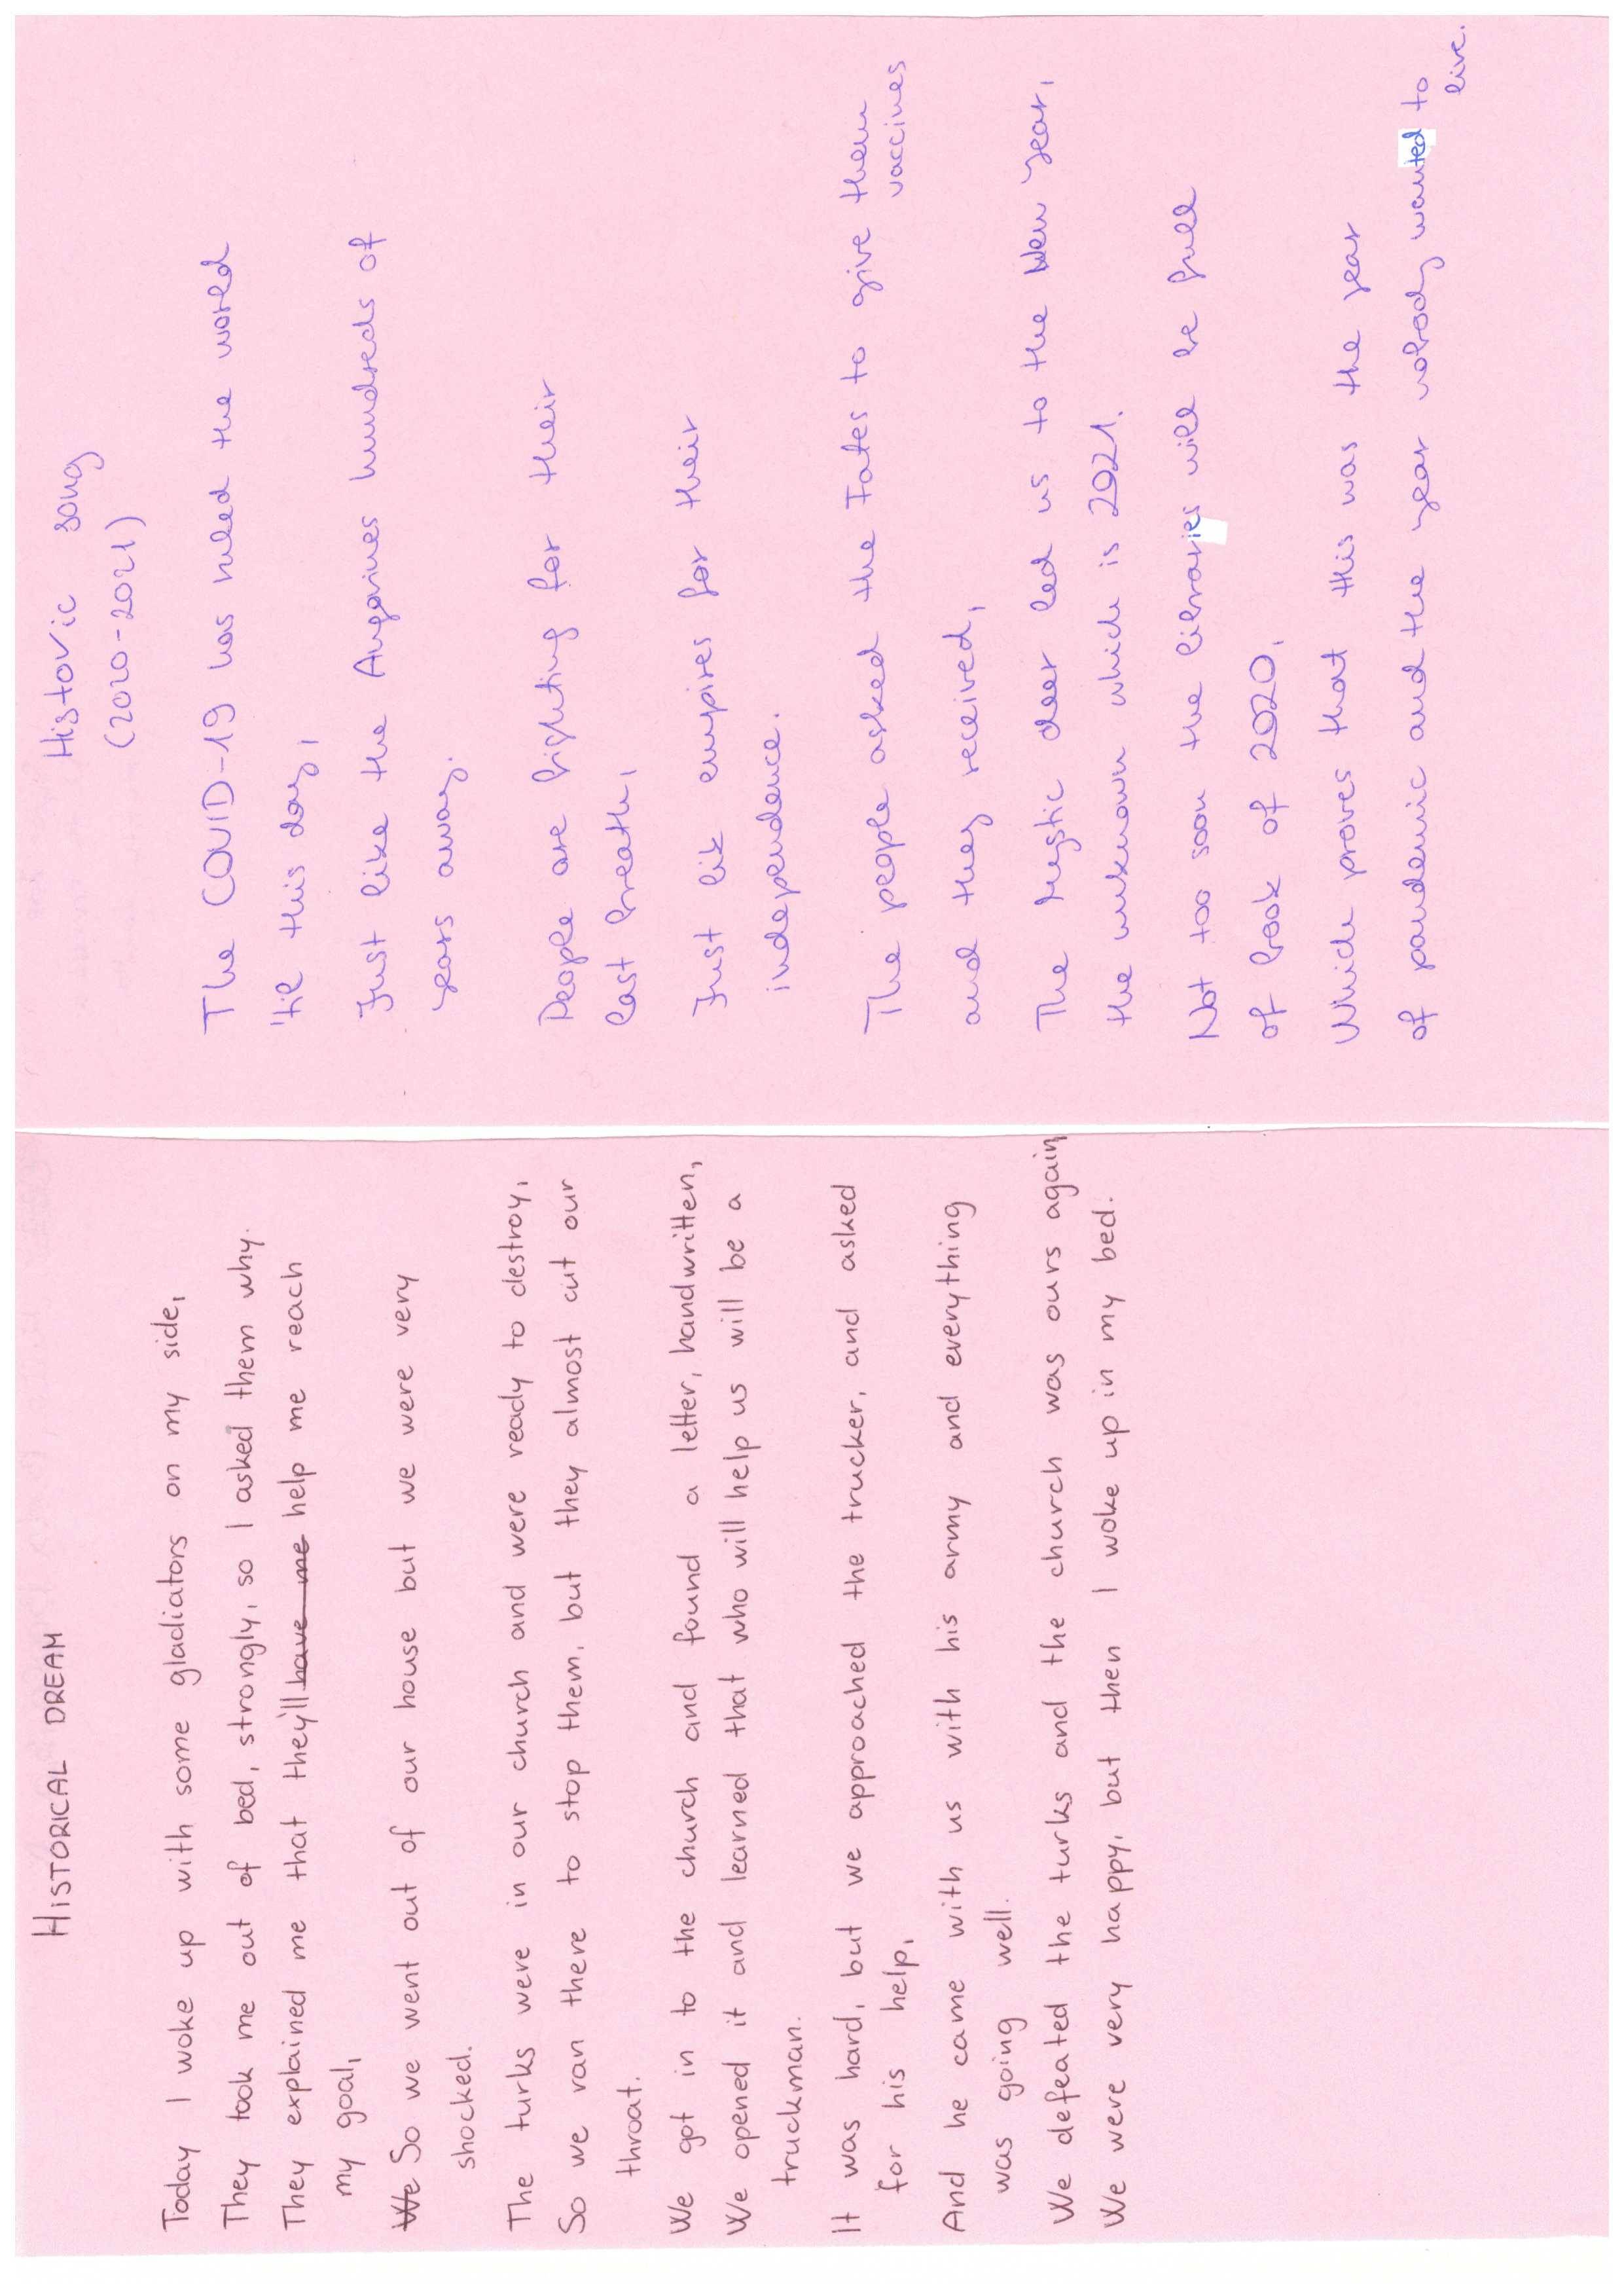 HISTORICAL DREAM
Today I woke up with some gladiators on my side,
They took me out of bed, strongly, so I asked them why.
They explained me that they'll have me help me reach
my goal,
We So we went out of our house but we were very
shocked.
The turks were in our church and were ready to destroy,
So we ran there to stop them, but they almost cut our
throat.
We got in to the church and found a letter, handwritten,
We opened it and learned that who will help us will be a
truckman.
It was hard, but we approached the trucker, and asked
for his help,
And he came with us with his army and everything
was going well.
We defeated the turks and the church was ours again
We were very happy, but then I woke up in my bed.
Historic song
(2020-2021)
The COVID-19 has ruled the world
'til this day,
Just like the Angevines hundreds of
years away.
People are fighting for their
last breath,
Just lik empires for their
independence.
The people asked the Fates to give them
vaccines
and they received,
The Mystic deer led us to the New Year,
the unknown which is 2021.
Not too soon the libraries will be full
of book of 2020,
Which proves that this was the year
of pandemic and the year nobody wanted to
live.